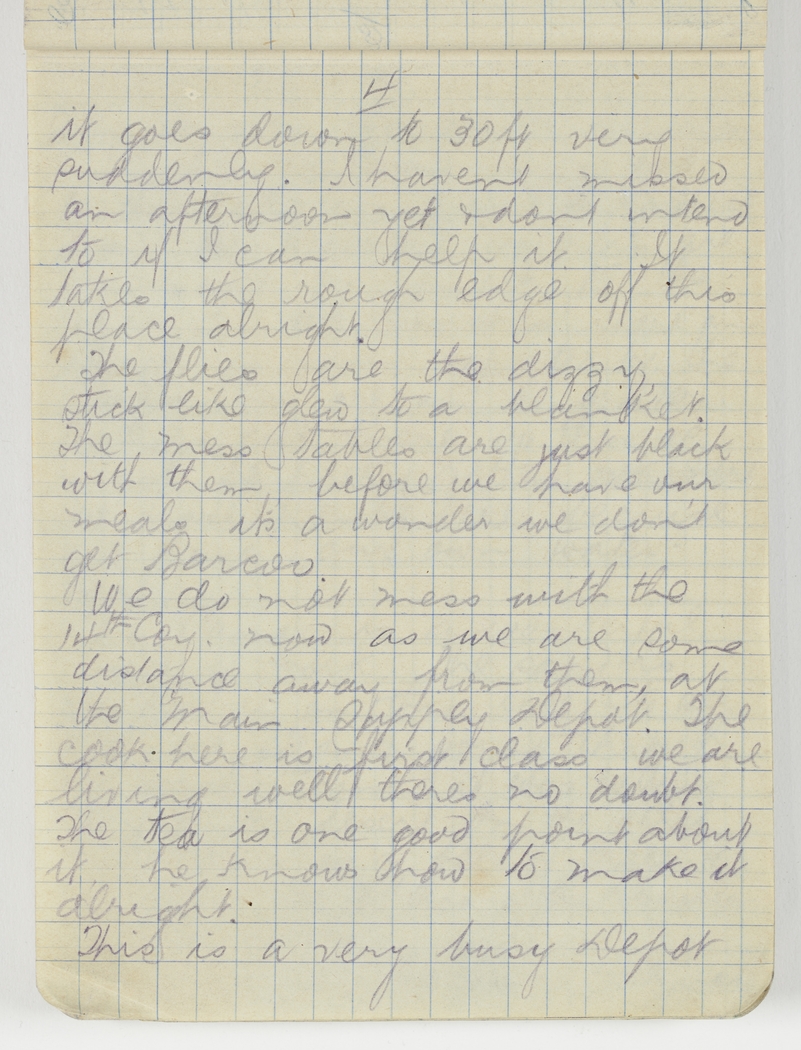 4
it goes down to 30ft very
suddenly. I havent missed
an afternoon yet & dont intend
to if I can help it. It
takes the rough edge off this
place alright.
The flies are the dizzy,
stick like glew to a blanket.
The mess tables are just black
with them before we have our
meals its a wonder we don't
get Barcoo.
We do not mess with the
14th Coy. now as we are some
distance away from them, at
the Main Supply Depot. The
cook here is first class we are
living well theres no doubt.
The tea is one good point about
it, he knows how to make it
alright.
This is a very busy Depot